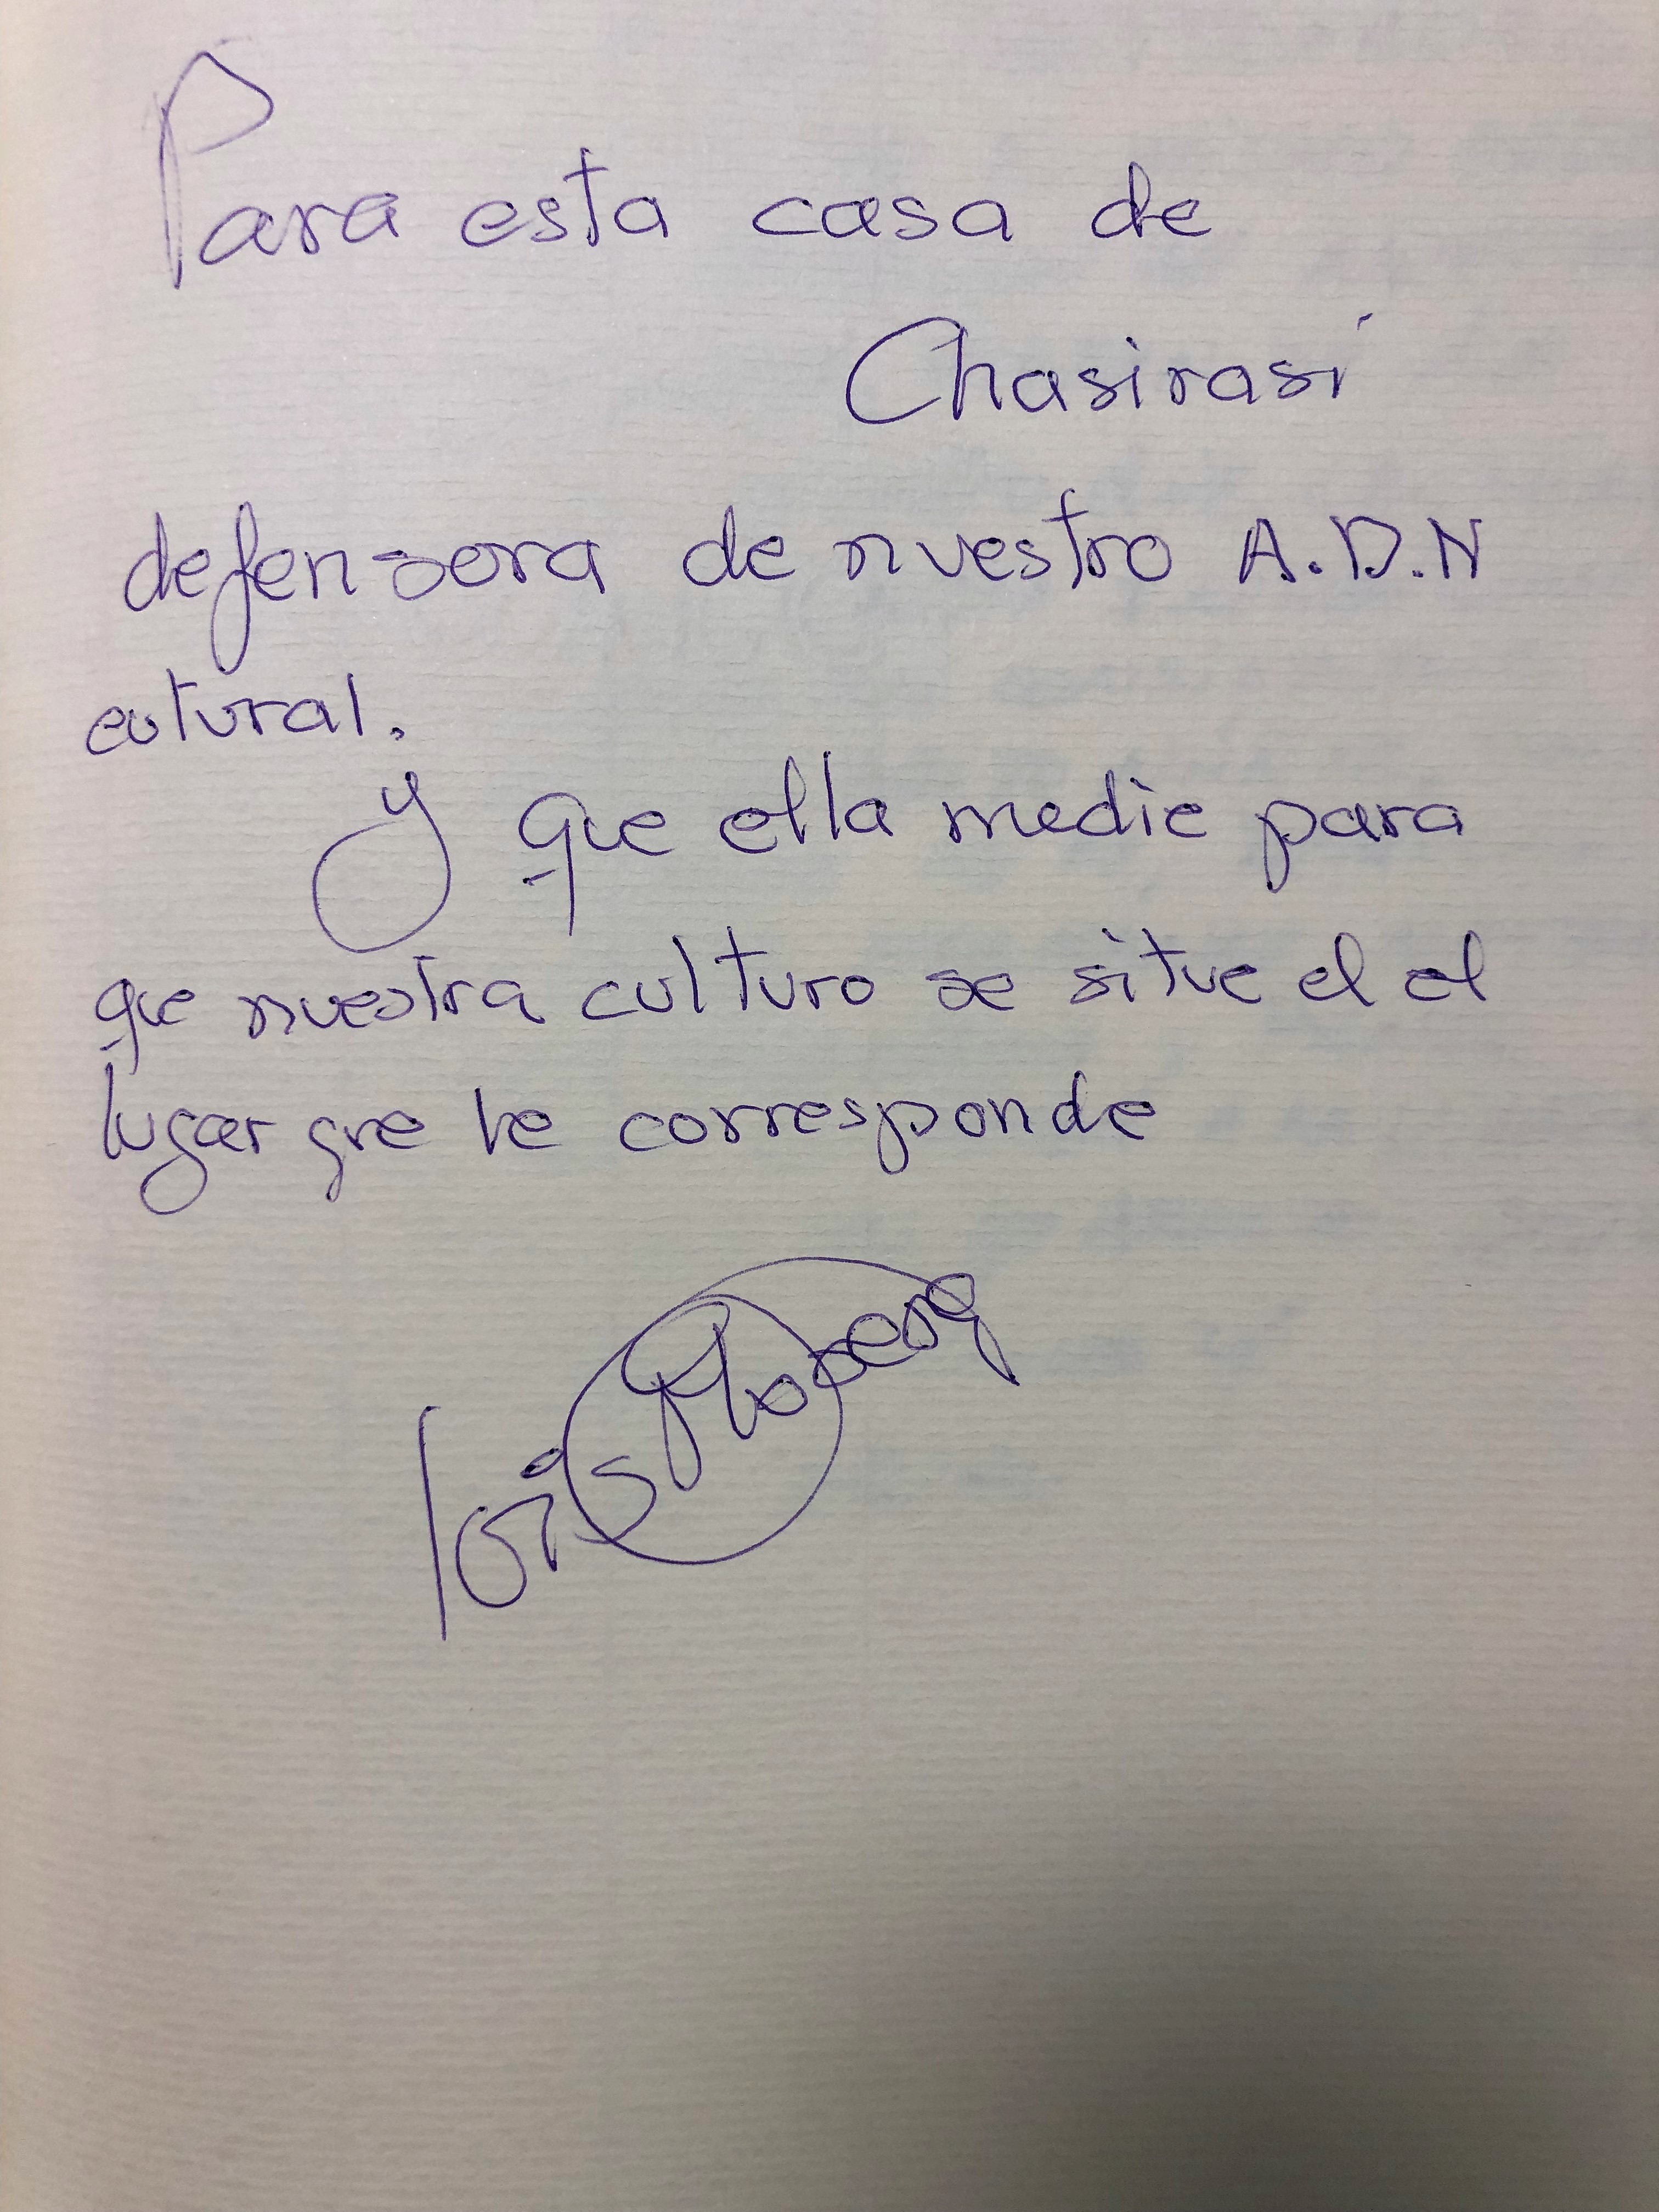 Para esta casa de
Chasirasí
defensora de nuestro A.D.N
cutural.
Y que ella medie para
que nuestra culturo se situe el el
lugar que le corresponde